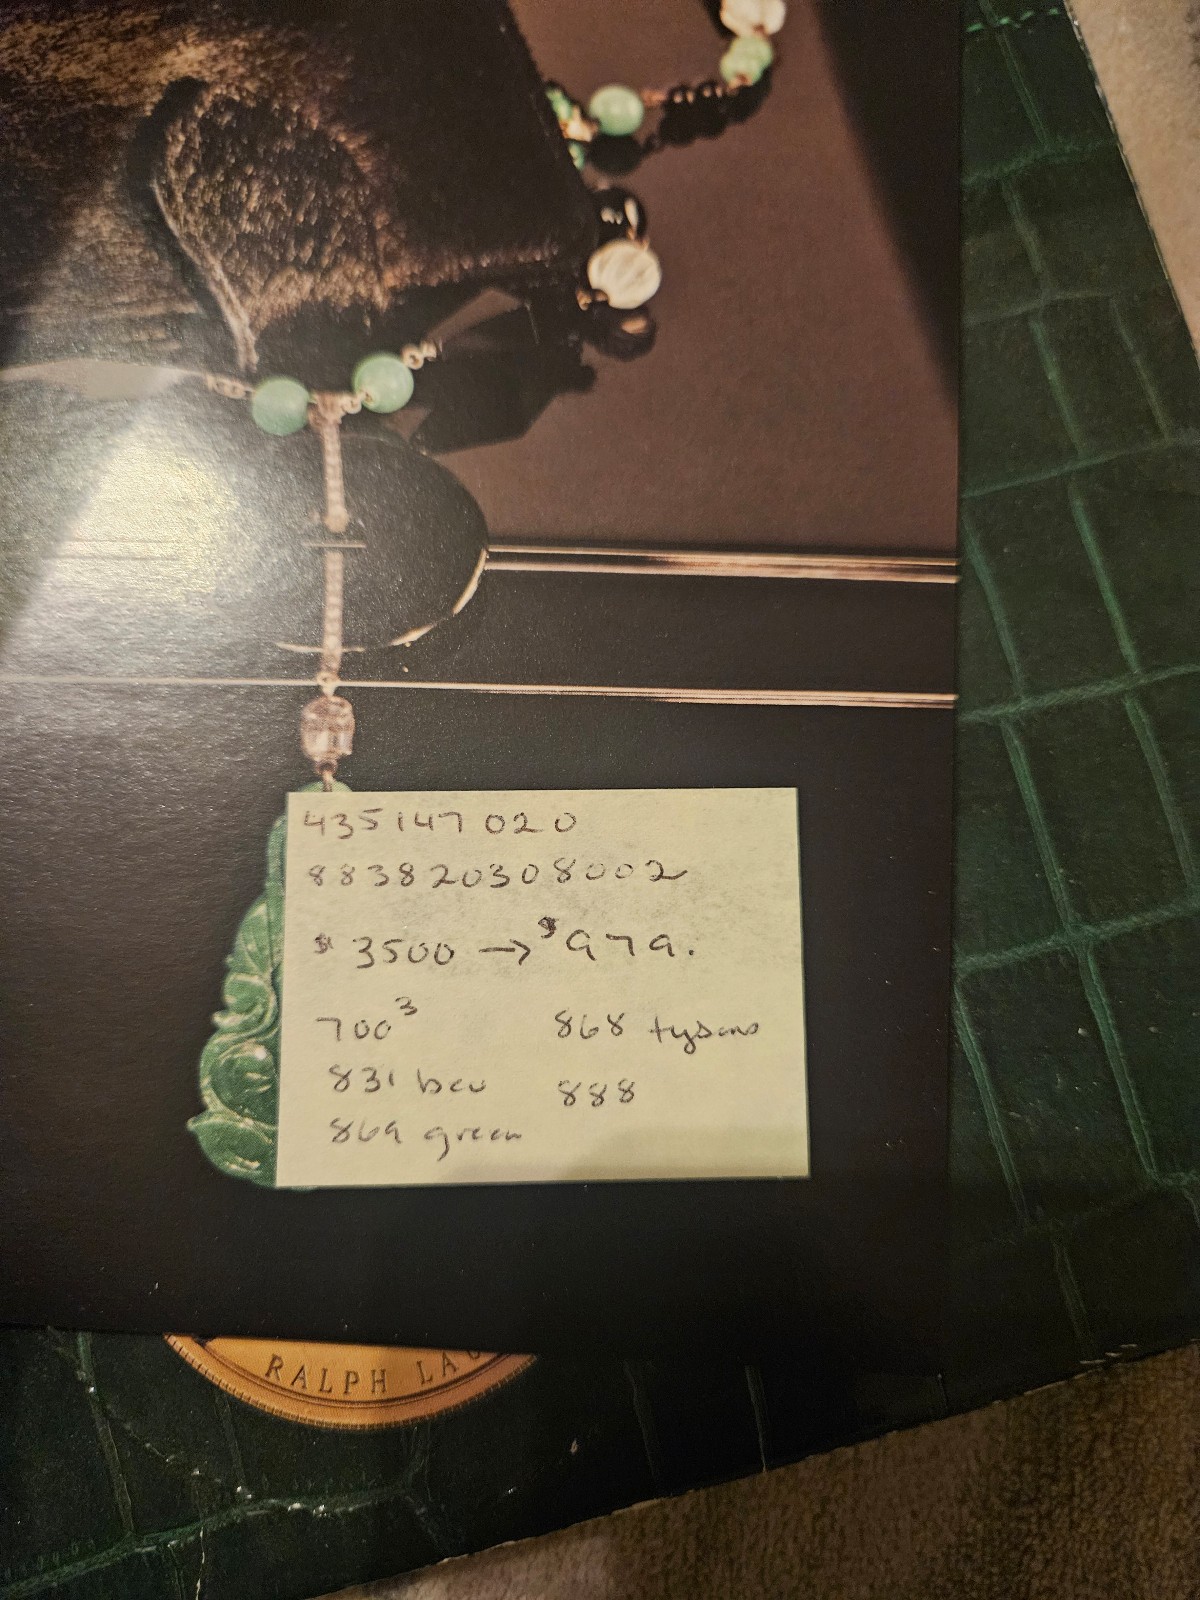 435147 020
883820308002
$ 3500 → $979.
700³
868 tysons
831
888
869 green
RALPH LAU